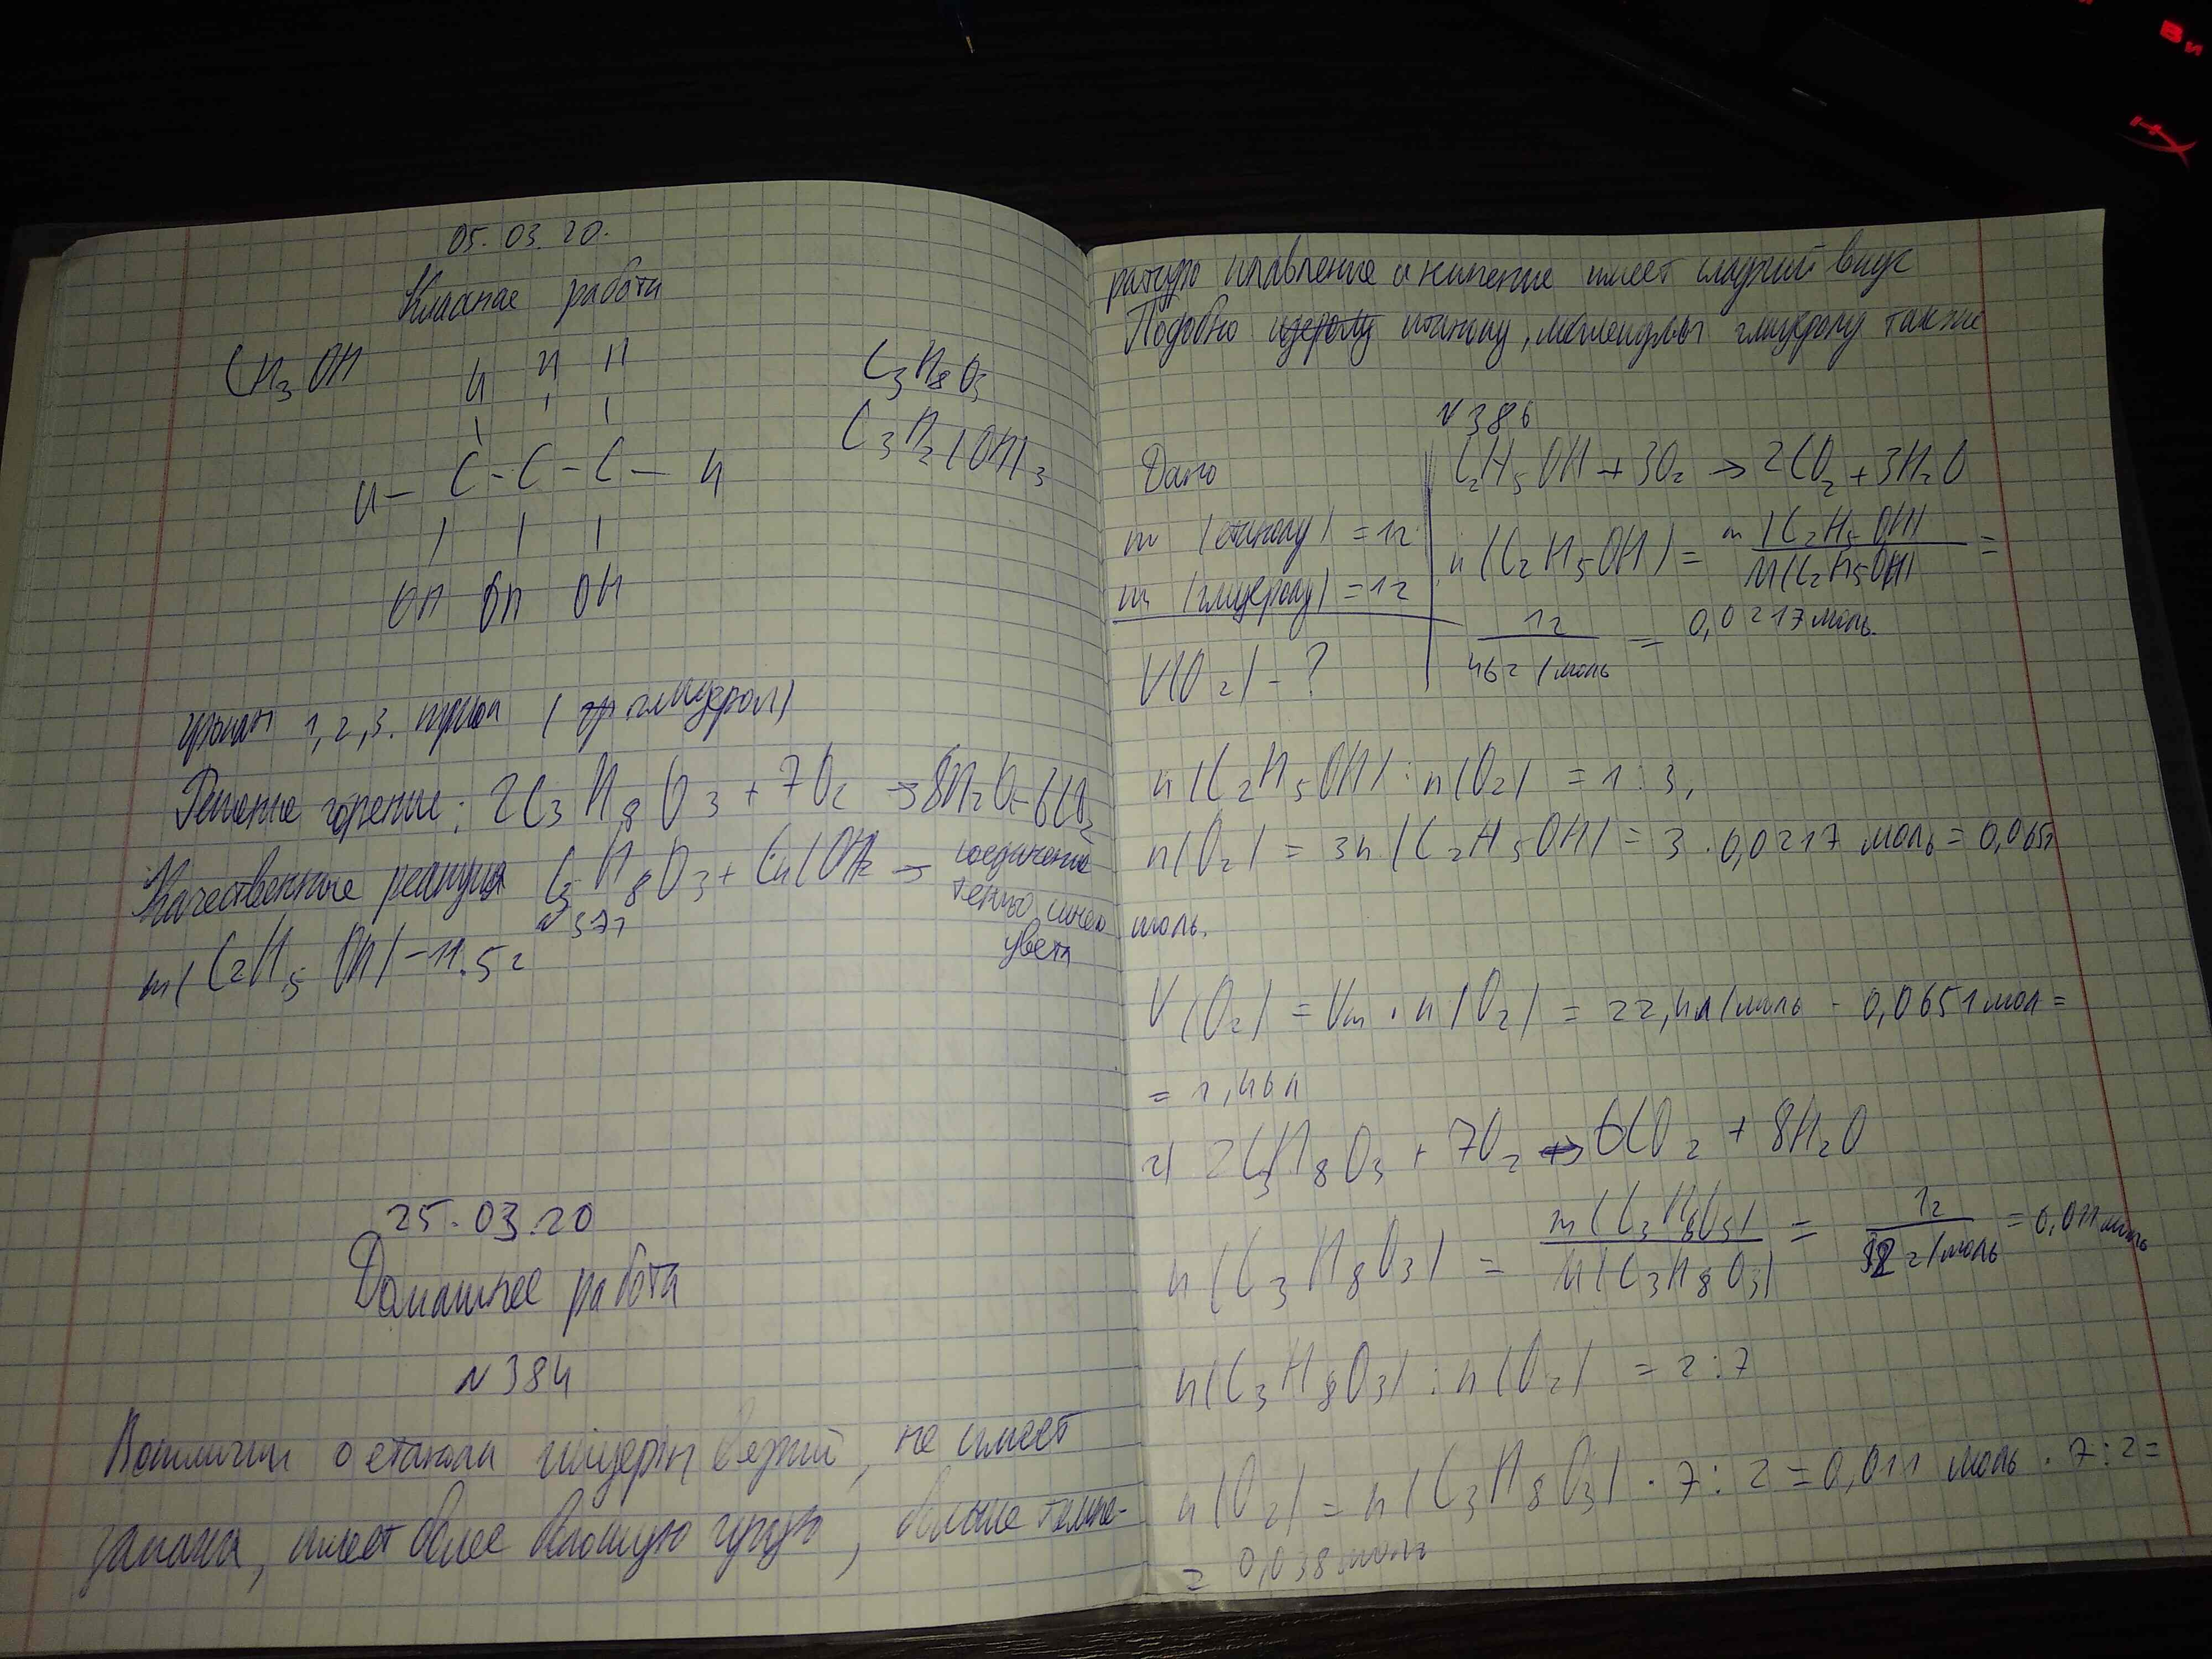 05.03.20.
Класная работа
CH3OH
H H H
H-C-C-C-H
OH OH OH
C3H8O3
C3H5(OH)3
1,2,3. триол (глицерол)
горения: 2C3H8O3 + 7O2 → 8H2O + 6CO2
Качественные реакция C3H8O3 + Cu(OH)2 → соединение
темно синего
цвета
№377
m(C2H5OH) - 11.5г
25.03.20
Домашнее работа
№384
не имеет
запаха, имеет более густу, больше темпе-
ратуру плавление и кипение имеет сладкий вкус
Подобно этанолу, молекулы глицеролу также
№386
Дано
m (етанолу) = 1г
m (глицеролу) = 1г
V(O2) - ?
C2H5OH + 3O2 → 2CO2 + 3H2O
n(C2H5OH) = m(C2H5OH) / M(C2H5OH) =
1г / 46г/моль = 0,0217моль.
n(C2H5OH) : n(O2) = 1 : 3,
n(O2) = 3n(C2H5OH) = 3 · 0,0217 моль = 0,0651
моль.
V(O2) = Vm · n(O2) = 22,4л/моль · 0,0651мол =
= 1,46л
2) 2C3H8O3 + 7O2 → 6CO2 + 8H2O
n(C3H8O3) = m(C3H8O3) / M(C3H8O3) = 1г / 92г/моль = 0,011моль
n(C3H8O3) : n(O2) = 2:7
n(O2) = n(C3H8O3) · 7 : 2 = 0,011 моль · 7:2 =
= 0,038моль